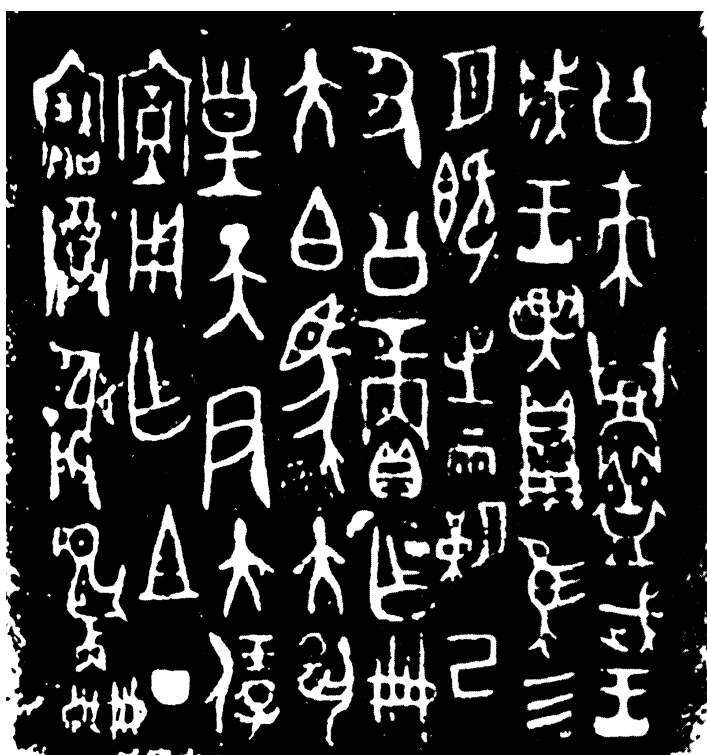 公朿鑄武王
成王異鼎隹四
月既生霸己
丑公賞乍册
大白馬大揚
皇天尹大保
室用乍且丁
寶尊彝雋册